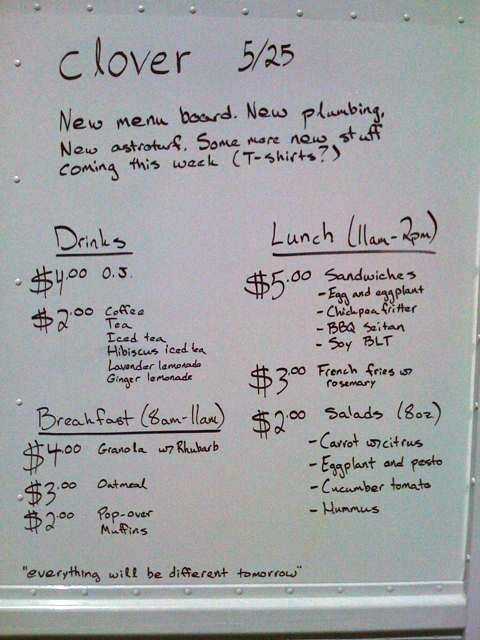 clover 5/25
New menu board. New plumbing.
New astroturf. Some more new stuff
coming this week (T-shirts?)
Drinks
$4.00 O.J.
$2.00 Coffee
Tea
Iced tea
Hibiscus iced tea
Lavender lemonade
Ginger lemonade
Breakfast (8am-11am)
$4.00 Granola w/Rhubarb
$3.00 Oatmeal
$2.00 Pop-over
Muffins
Lunch (11am-2pm)
$5.00 Sandwiches
- Egg and eggplant
- Chickpea fritter
- BBQ Seitan
- Soy BLT
$3.00 French fries w/
rosemary
$2.00 Salads (8oz)
- Carrot w/citrus
- Eggplant and pesto
- Cucumber tomato
- Hummus
"everything will be different tomorrow"